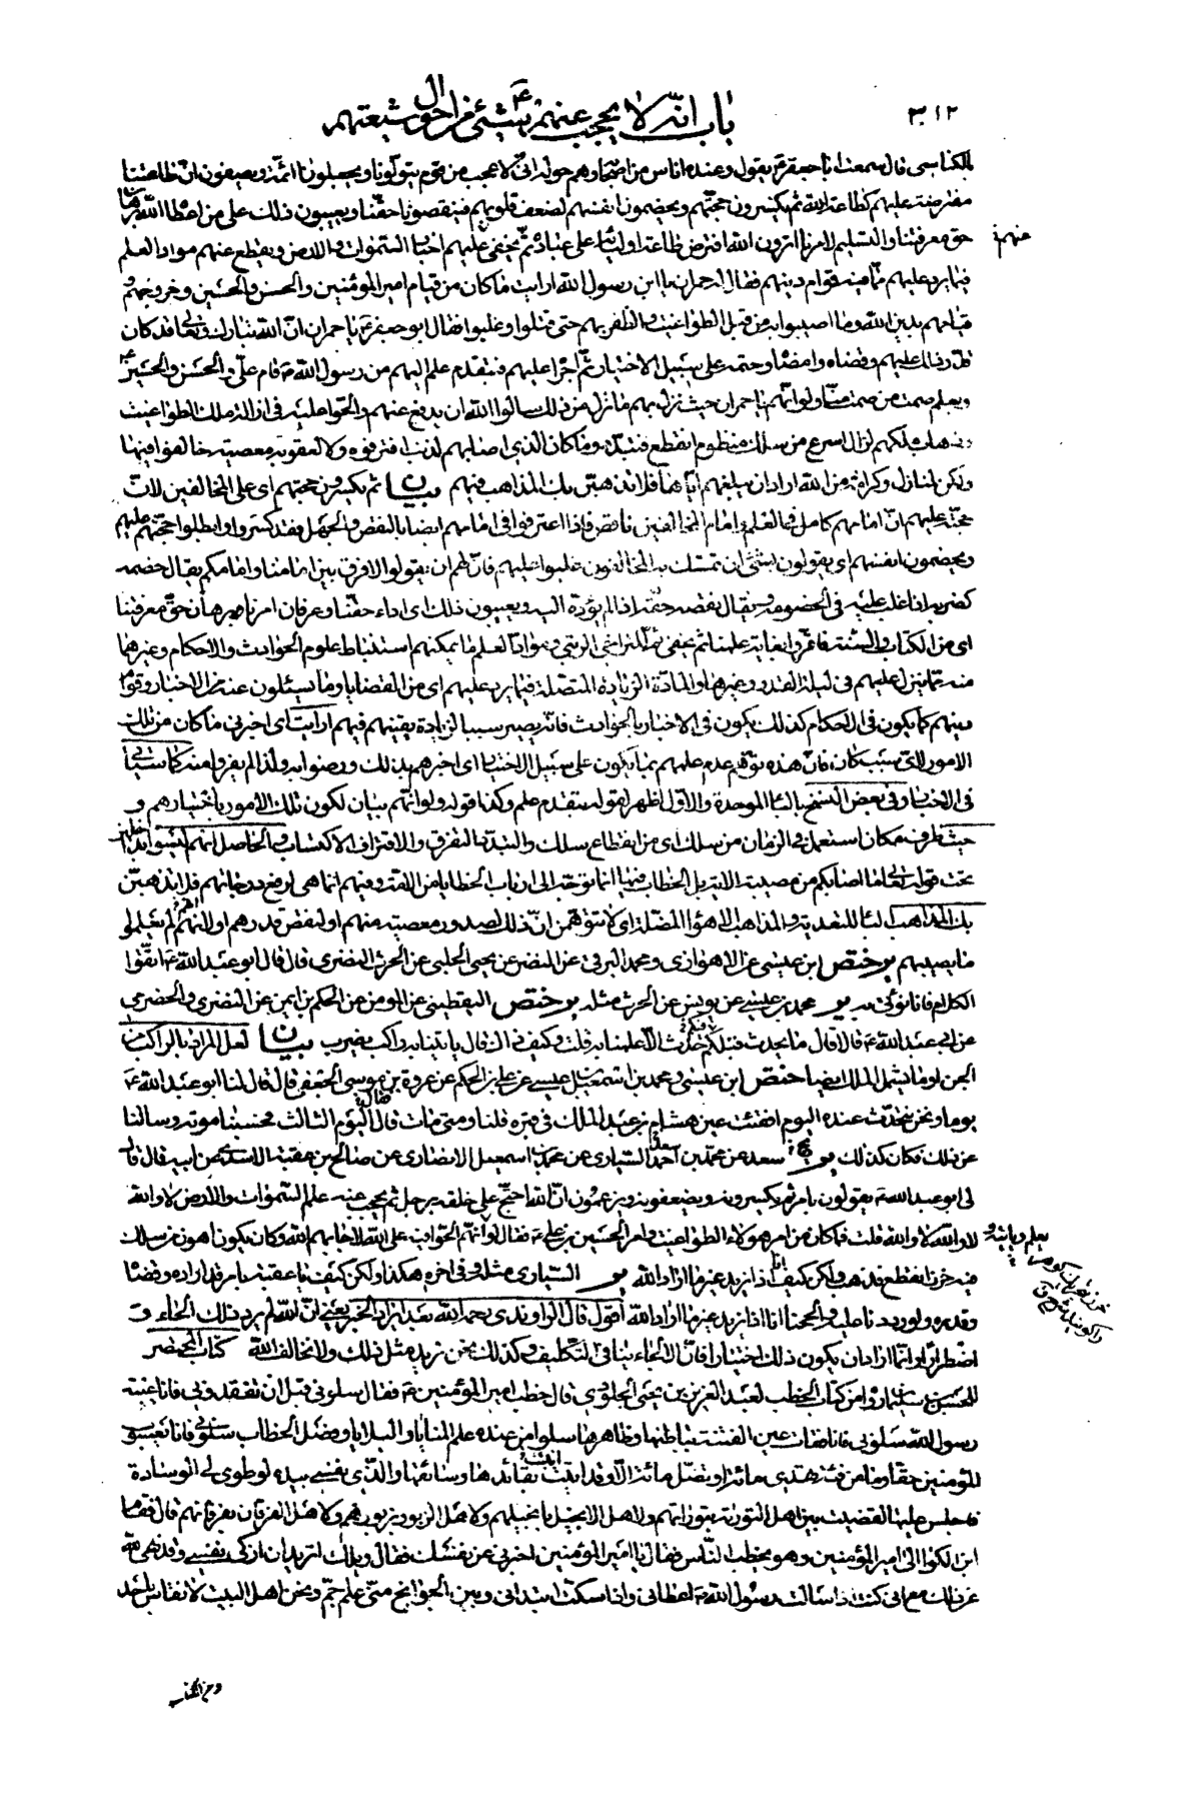 ٣١٢
باب انّه لا يحجب عنهم ع شيئ من احوال شيعتهم
الكناسى قال سمعت ابا جعفر ع يقول وعنده اناس من اصحابه وهم حوله انى لاعجب من قوم يتولونا ويجعلونا ائمّة ويصفون انّ طاعتنا
مفترضة عليهم كطاعة الله ثم يكسرون حجّتهم ويخصمون انفسهم لضعف قلوبهم فينقصونا حقّنا ويعيبون ذلك على من اعطاه الله برهان
حق معرفتنا والتسليم لامرنا اترون الله افترض طاعة اوليائه على عباده ثم يخفى عليهم اخبار السّموات والارض ويقطع عنهم مواد العلم
عنهم
فيما يرد عليهم ممّا فيه قوام دينهم فقال له حمران يا ابن رسول الله ارايت ما كان من قيام امير المؤمنين والحسن والحسين وخروجهم و
قيامهم بدين الله وما اصيبوا به من قبل الطواغيت والظفر بهم حتى قتلوا وغلبوا فقال ابو جعفر ع يا حمران انّ الله تبارك وتعالى قد كان
قدّر ذلك عليهم وقضاه وامضاه وحتمه على سبيل الاختيار ثم اجراه عليهم فبتقدم علم اليهم من رسول الله ص قام علىّ والحسن والحسين ع
وبعلم صمت من صمت منّا ولو انّهم يا حمران حيث نزل بهم ما نزل من ذلك سالوا الله ان يدفع عنهم والحّوا عليه فى ازالة ملك الطواغيت
وذهاب ملكهم لزال اسرع من سلك منظوم انقطع فتبدّد وما كان الذى اصابهم لذنب اقترفوه ولا لعقوبة معصية خالفوا فيها
ولكن لمنازل وكرامة من الله اراد ان يبلغهم ايّاها فلا تذهبنّ بك المذاهب فيهم بيان ثم يكسرون حجتهم اى على المخالفين لانّ
حجّته عليهم انّ امامهم كامل فى العلم وامام المخالفين ناقص فاذا اعترفوا فى امامهم ايضا بالنقص والجهل فقد كسروا وابطلوا حجّتهم عليهم
ويخصمون انفسهم اى يقولون بشئ ان تمسّك به المخالفون غلبوا عليهم فانّ لهم ان يقولوا لا فرق بين امامنا وامامكم يقال خصمه
كضربه اذا غلب عليه فى الخصومة ويقال نقصه حقّه اذا لم يؤدّه اليه ويعيبون ذلك اى اداء حقّنا وعرفان امرنا برهان حقّ معرفتنا
اى من الكتاب والسّنة
منه ممّا ينزل عليهم فى ليلة القدر وغيرها والمادّة الزيادة المتصلة فيما يرد عليهم اى من القضايا وما يسئلون عنه من الاخبار وقوام
دينهم كما يكون فى الاحكام كذلك يكون فى الاخبار بالحوادث فانّه يصير سببا لزيادة يقينهم فيهم ارايت اى اخبرنى ما كان من تلك
الامور لاىّ سبب كان فانّ هذه توهّم عدم علمهم بما يكون على سبيل الاختيار اى اخبرهم بذلك ورضوا به ولذا لم يفرّوا منه كما سيأتى
فى الاخبار وفى بعض النسخ بالباء الموحدة والاوّل اظهر لقوله فبتقدم علم وكذا قوله ولو انّهم بيان لكون تلك الامور باختيارهم و
حيث ظرف مكان استعمل فى الزمان من سلك اى من انقطاع سلك والتبدّد التفرق والاقتراف الاكتساب والحاصل انهم ليسوا بداخلين
تحت قوله تعالى ما اصابكم من مصيبة الاية بل الخطاب فيها انما توجّه الى ارباب الخطايا من الامّة وفيهم انما هى لرفع درجاتهم فلا تذهبنّ
بك المذاهب الباء للتعدية والمذاهب الاهواء المضلّة اى لا تتوهّمن انّ ذلك لصدور معصية منهم او لنقص قدرهم او لانّهم لم يعلموا
ما يصيبهم ير ختص ابن عيسى عن الاهوازى ومحمد البرقى عن النضر عن يحيى الحلبى عن الحرث النضرى قال قال ابو عبد الله ع اتّقوا
الكلام فانا نؤتى به ير محمد بن عيسى عن يونس عن الحرث مثله ير ختص اليقطينى عن المومن عن الحكم بن ايمن عن النضرى والحضرمى
عن ابى عبد الله ع قالا قال ما يحدث قبلكم حدث الّا علمنا به قلت وكيف ذاك قال ياتينا به راكب يضرب بيان لعل المراد بالراكب
الجن او ما يشمل الملك ايضا ختص ابن عيسى ومحمد بن اسمعيل بن عيسى عن على بن الحكم عن عروة بن موسى الجعفى قال قال لنا ابو عبد الله ع
يوما ونحن نتحدّث عنده اليوم انفقئت عين هشام بن عبد الملك فى قبره قلنا ومتى مات قال اليوم الثالث فحسبنا موته وسالنا
عن ذلك فكان كذلك ير سعد عن محمّد بن احمد السيّارى عن محمد بن اسمعيل الانصارى عن صالح بن عقبة الاسدى عن ابيه قال قال
لى ابو عبد الله ع يقولون بامر ثم يكسرونه ويضعفونه ويزعمون انّ الله احتجّ على خلقه برجل ثم يحجب عنه علم السّموات والارض لا والله
لا والله لا والله قلت فما كان من امر هؤلاء الطواغيت وامر الحسين بن على ع فقال لو انّهم الحّوا فيه على الله لاجابهم الله وكان يكون اهون من سلك
فيه خرز انقطع فذهب ولكن كيف انّا اذا نريد غير ما اراد الله ير السيّارى مثله وفى اخره هكذا ولكن كيف يا عقبة بامر قد اراده وقضاه
وقدره ولو رددنا عليه والححنا انّا اذا نريد غير ما اراد الله اقول قال الراوندى رحمه الله بعد ايراد الخبر يعنى انّ الله لم يرد ذلك الجاء و
اضطرارا وانّما اراد ان يكون ذلك اختيارا فانّ الالجاء ينافى التكليف وكذلك نحن نريد مثل ذلك ولا نخالف الله كتاب المحتضر
للحسن بن سليمان رواه من كتاب الخطب لعبد العزيز بن يحيى الجلودى قال خطب امير المؤمنين ع فقال سلونى قبل ان تفقدونى فانا عيبة
رسول الله سلونى فانا فقات عين الفتنة بباطنها وظاهرها سلوا من عنده علم المنايا والبلايا والوصايا وفصل الخطاب سلونى فانا يعسوب
المؤمنين حقا وما من فئة تهدى مائة او تضلّ مائة الّا وقد اتيت بقائدها وسائقها والّذى نفسى بيده لو طوى لى الوسادة
فاجلس عليها لقضيت بين اهل التورية بتوراتهم ولاهل الانجيل بانجيلهم ولاهل الزبور بزبورهم ولاهل الفرقان بفرقانهم قال فقام
ابن الكوّا الى امير المؤمنين وهو يخطب النّاس فقال يا امير المؤمنين اخبرنى عن نفسك فقال ويلك اتريد ان ازكّى نفسى وقد نهى الله
عن ذلك مع انى كنت اذا سالت رسول الله ص اعطانى واذا سكتّ ابتدانى وبين الجوانح منّى علم جمّ ونحن اهل البيت لا نقاس باحد